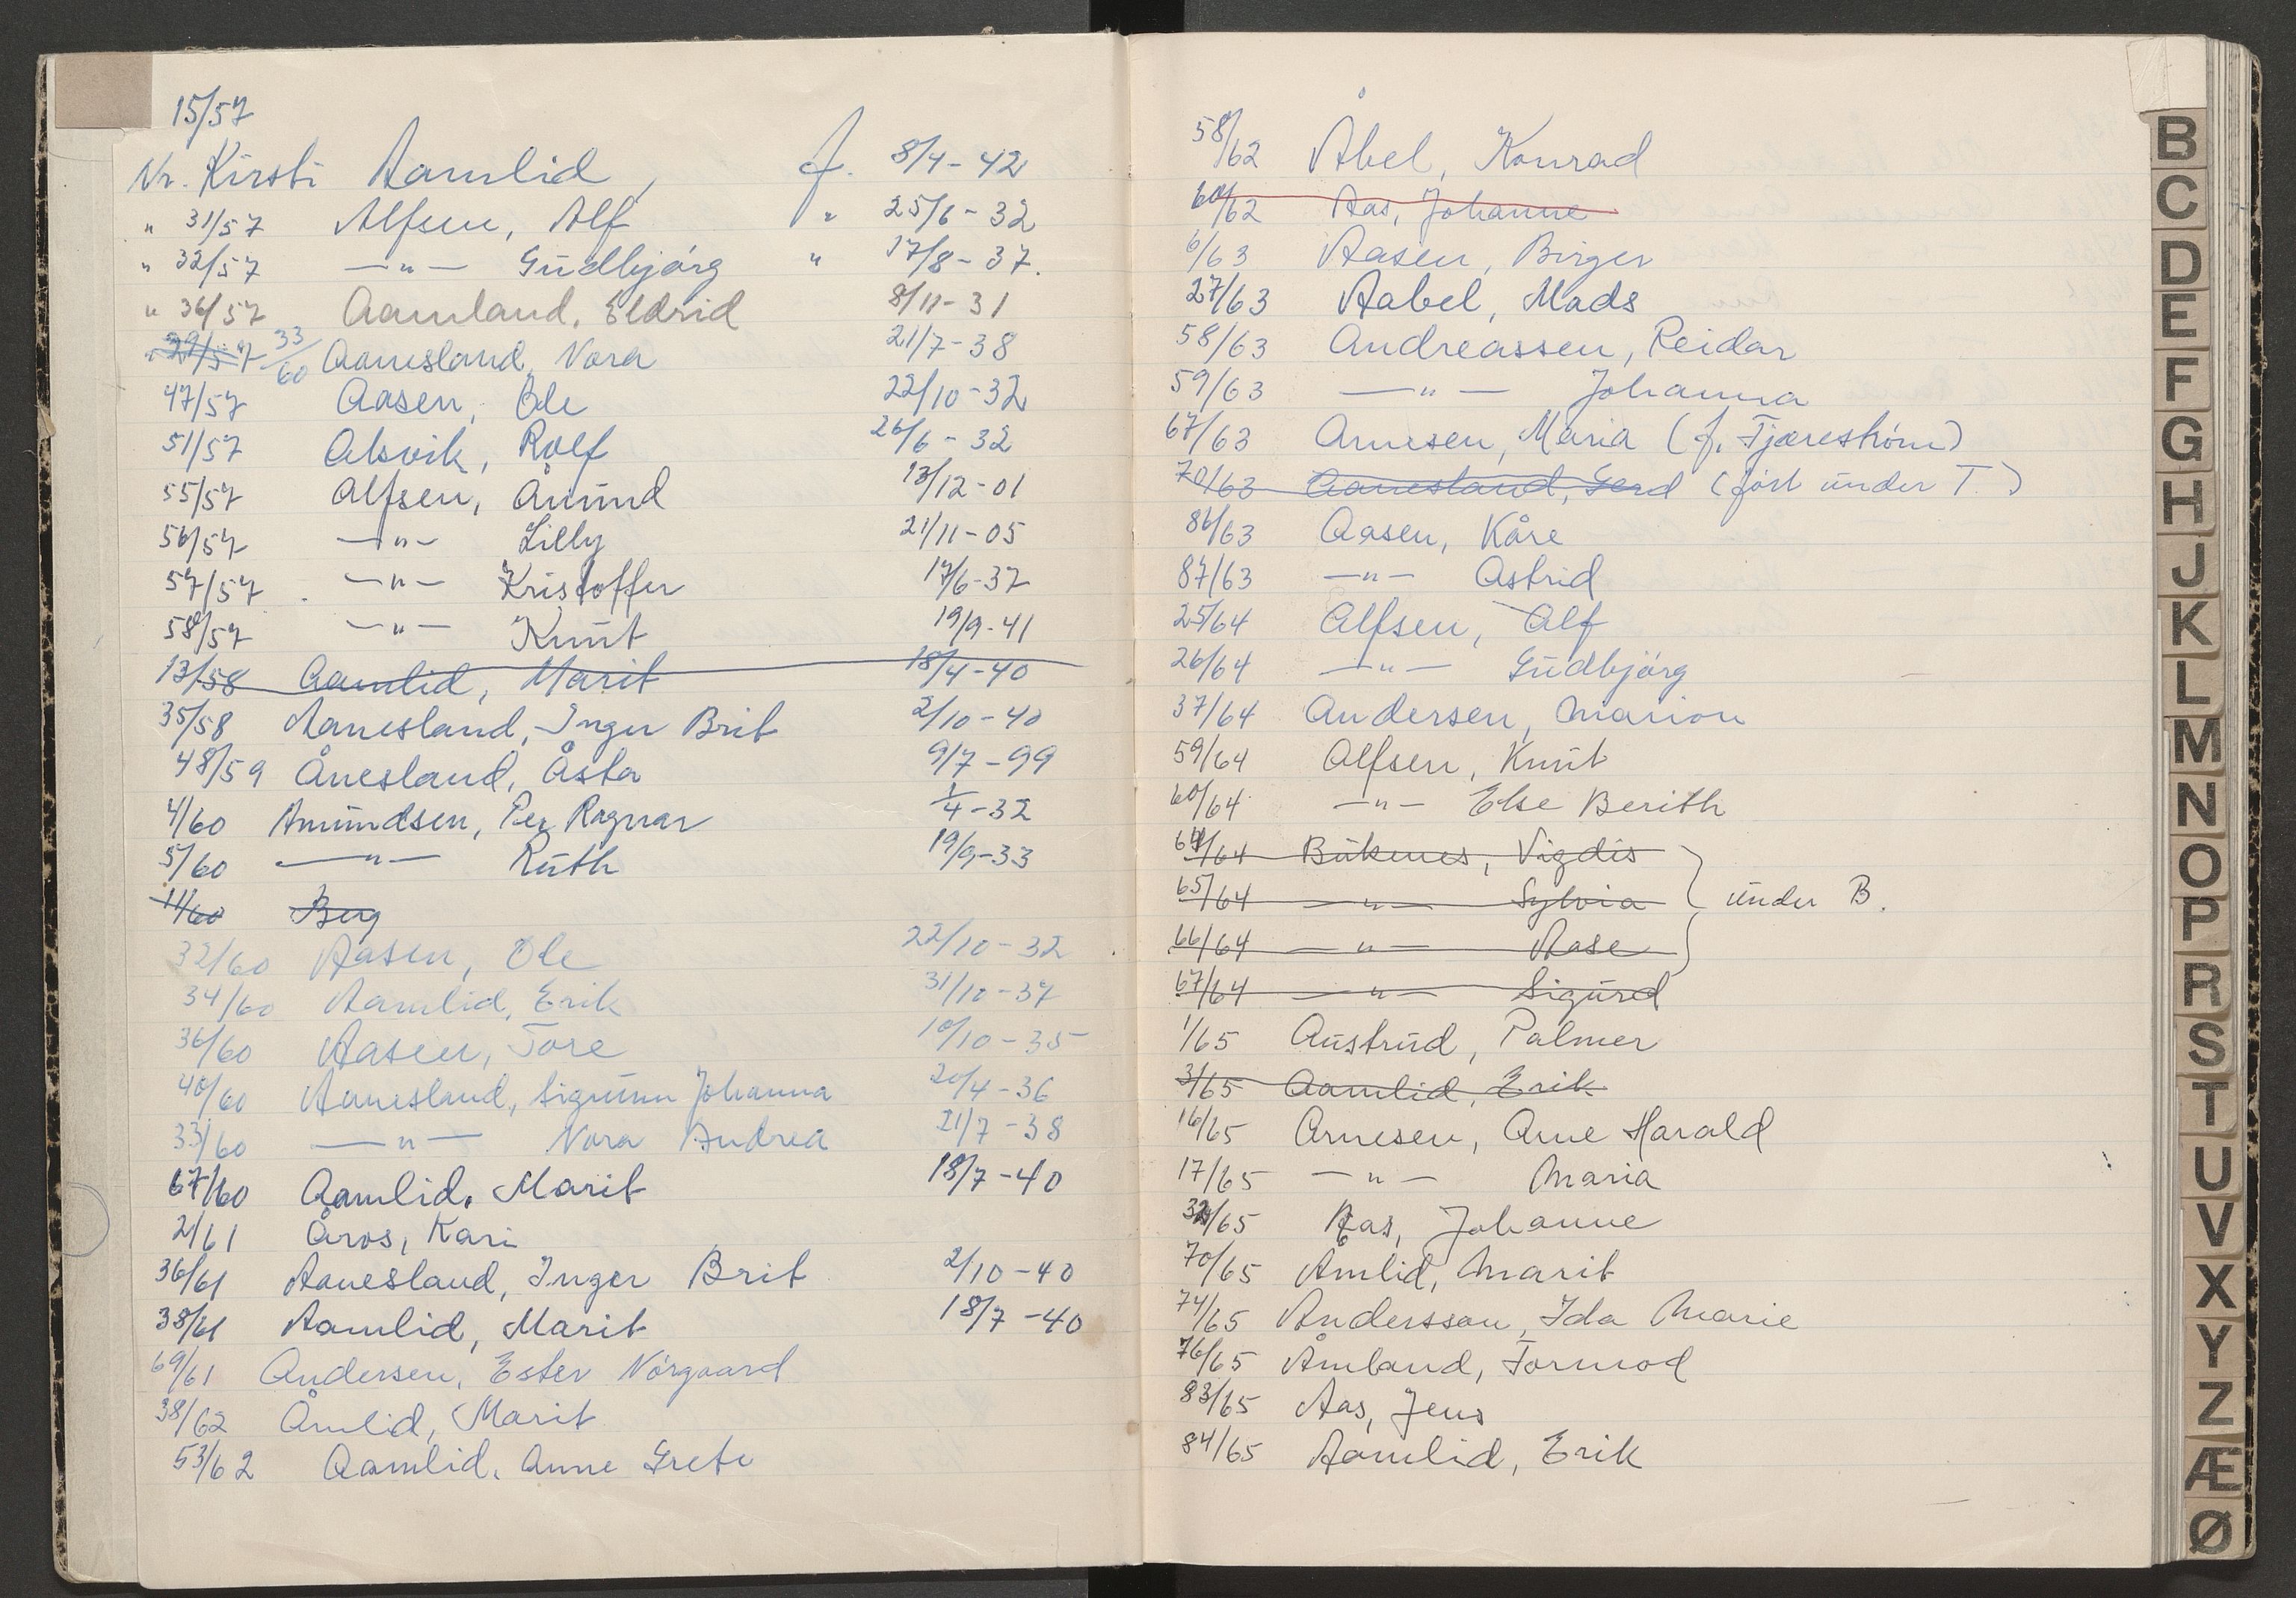 15/57
Nr. Kirsti Aamlid, f. 8/4-42
" 31/57 Alfsen, Alf " 25/6-32
" 32/57 —"— Gudbjørg " 17/8-37.
" 36/57 Aamland, Eldrid 8/11-31
33/60 Aanesland, Nora 21/7-38
47/57 Aasen, Ole 22/10-32
51/57 Alsvik, Rolf 26/6-32
55/57 Alfsen, Ånund 13/12-01
56/57 —"— Lilly 21/11-05
57/57 —"— Kristoffer 17/6-37
58/57 —"— Knut 19/9-41
13/58 Aamlid, Marit 18/4-40
35/58 Aanesland, Inger Brit 2/10-40
48/59 Ånesland, Åsta 9/7-99
4/60 Amundsen, Per Ragnar 1/4-32
5/60 —"— Ruth 19/9-33
11/60 Berg
32/60 Aasen, Ole 22/10-32
34/60 Aamlid, Erik 31/10-37
36/60 Aasen, Tore 10/10-35
40/60 Aanesland, Sigrunn Johanna 20/4-36
33/60 —"— Nora Andrea 21/7-38
67/60 Aamlid, Marit 18/7-40
2/61 Åros, Kari
36/61 Aanesland, Inger Brit 2/10-40
38/61 Aamlid, Marit 18/7-40
69/61 Andersen, Ester Nörgaard
38/62 Åmlid, Marit
53/62 Aamlid, Anne Grete
58/62 Åbel, Konrad
60/62 Aas, Johanne
6/63 Aasen, Birger
27/63 Aabel, Mads
58/63 Andreassen, Reidar
59/63 —"— Johanna
67/63 Arnesen, Maria (f. Tjæreström)
70/63 Aanesland, Gerd (ført under T.)
86/63 Aasen, Kåre
87/63 —"— Astrid
25/64 Alfsen, Alf
26/64 —"— Gudbjørg
37/64 Andersen, Marion
59/64 Alfsen, Knut
60/64 —"— Else Berith
64/64 Bükenes, Vigdis
65/64 —"— Sylvia under B.
66/64 —"— Aase
67/64 —"— Sigurd
1/65 Austrud, Palmer
3/65 Aamlid, Erik
16/65 Arnesen, Arne Harald
17/65 —"— Maria
32/65 Aas, Johanne
70/65 Åmlid, Marit
74/65 Andersson, Ida Marie
76/65 Åmland, Tormod
83/65 Aas, Jens
84/65 Aamlid, Erik
B
C
D
E
F
G
H
J
K
L
M
N
O
P
R
S
T
U
V
X
Y
Z
Æ
Ø